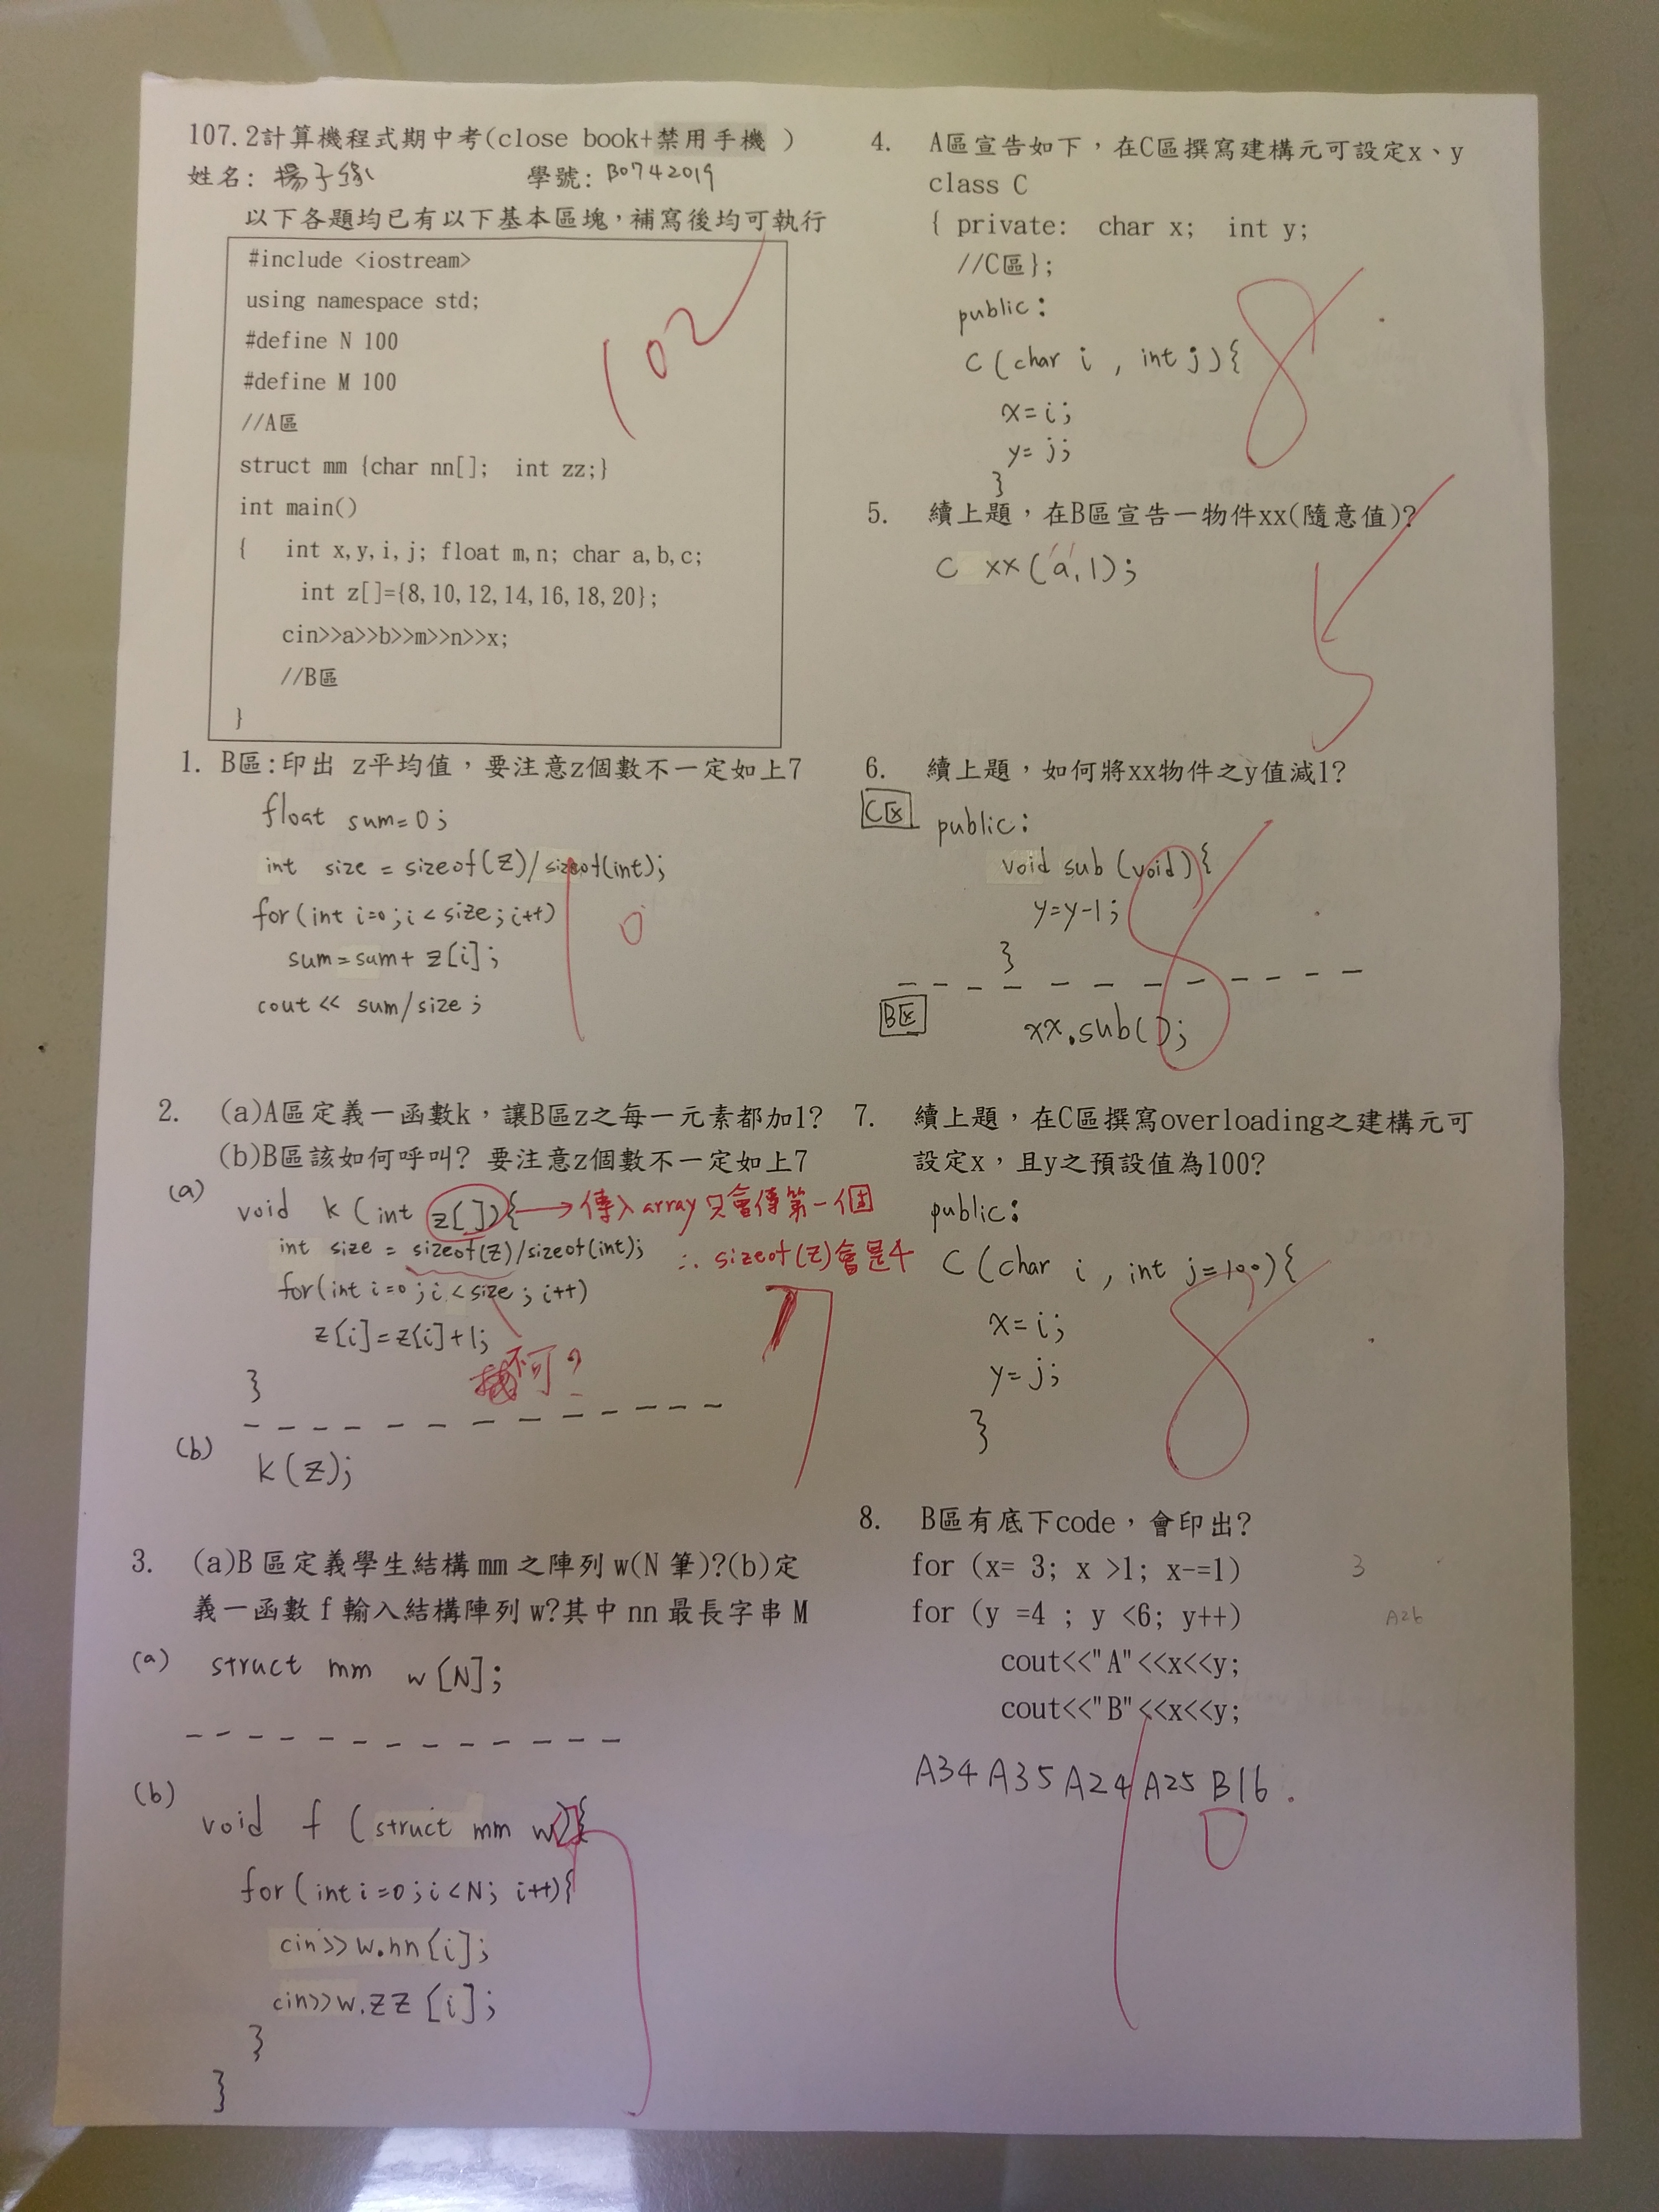 107.2計算機程式期中考(close book+禁用手機 )
姓名: 楊子緣 學號: B0742019
以下各題均已有以下基本區塊，補寫後均可執行
#include <iostream>
using namespace std;
#define N 100
#define M 100
//A區
struct mm {char nn[]; int zz;}
int main()
{ int x,y,i,j; float m,n; char a,b,c;
int z[]={8,10,12,14,16,18,20};
cin>>a>>b>>m>>n>>x;
//B區
}
102
1. B區:印出 z平均值，要注意z個數不一定如上7
float sum=0;
int size = sizeof(z)/sizeof(int);
for(int i=0;i<size;i++)
sum=sum+ z[i];
cout << sum/size ;
10
2. (a)A區定義一函數k，讓B區z之每一元素都加1?
(b)B區該如何呼叫? 要注意z個數不一定如上7
(a) void k (int z[]){ →傳入array只會傳第一個
int size = sizeof(z)/sizeof(int); ∴ sizeof(z)會是4
for(int i=0;i<size;i++)
z[i]=z[i]+1;
不可?
}
7
(b) k(z);
3. (a)B區定義學生結構mm之陣列w(N筆)?(b)定
義一函數f輸入結構陣列w?其中nn最長字串M
(a) struct mm w[N];
(b)
void f (struct mm w){
for(int i=0;i<N; i++){
cin>>w.nn[i];
cin>>w.zz[i];
}
}
4. A區宣告如下，在C區撰寫建構元可設定x、y
class C
{ private: char x; int y;
//C區};
public:
C(char i , int j){
x=i;
y=j;
}
8
5. 續上題，在B區宣告一物件xx(隨意值)?
C xx('a',1);
5
6. 續上題，如何將xx物件之y值減1?
C區 public:
void sub (void){
y=y-1;
}
B區 xx.sub();
8
7. 續上題，在C區撰寫overloading之建構元可
設定x，且y之預設值為100?
public:
C(char i, int j=100){
x=i;
y=j;
}
8
8. B區有底下code，會印出?
for (x= 3; x >1; x-=1) 3
for (y =4 ; y <6; y++) A26
cout<<"A"<<x<<y;
cout<<"B"<<x<<y;
A34 A35 A24 A25 B16 .
10